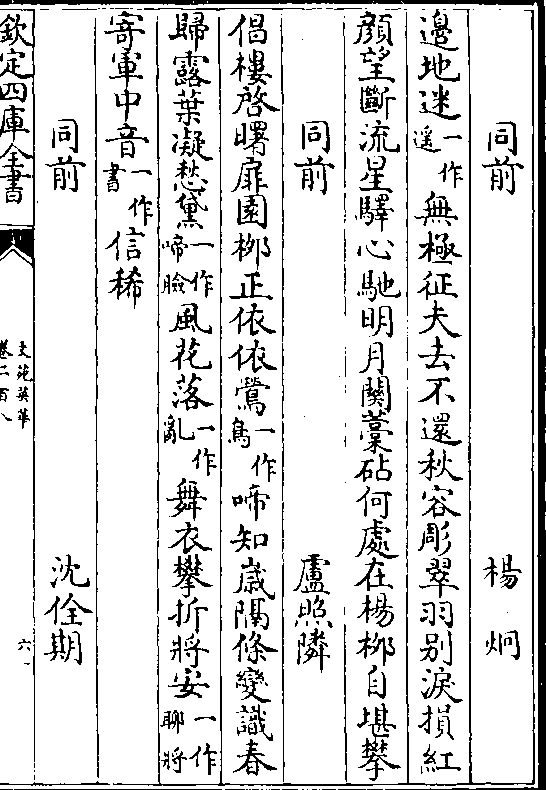 同前　楊烱
邉地迷一作遥無極征夫去不還秋容彫翠羽别淚損紅
顔望斷流星驛心馳明月關藁砧何處在楊栁自堪攀
同前　盧照隣
倡樓啓曙扉園栁正依依鶯一作鳥啼知歳隔條變識春
歸露葉凝愁黛一作啼臉風花落一作亂舞衣攀折將安一作聊將
寄軍中音一作書信稀
同前　沈佺期
欽定四庫全書
文苑英華
卷二百八
六